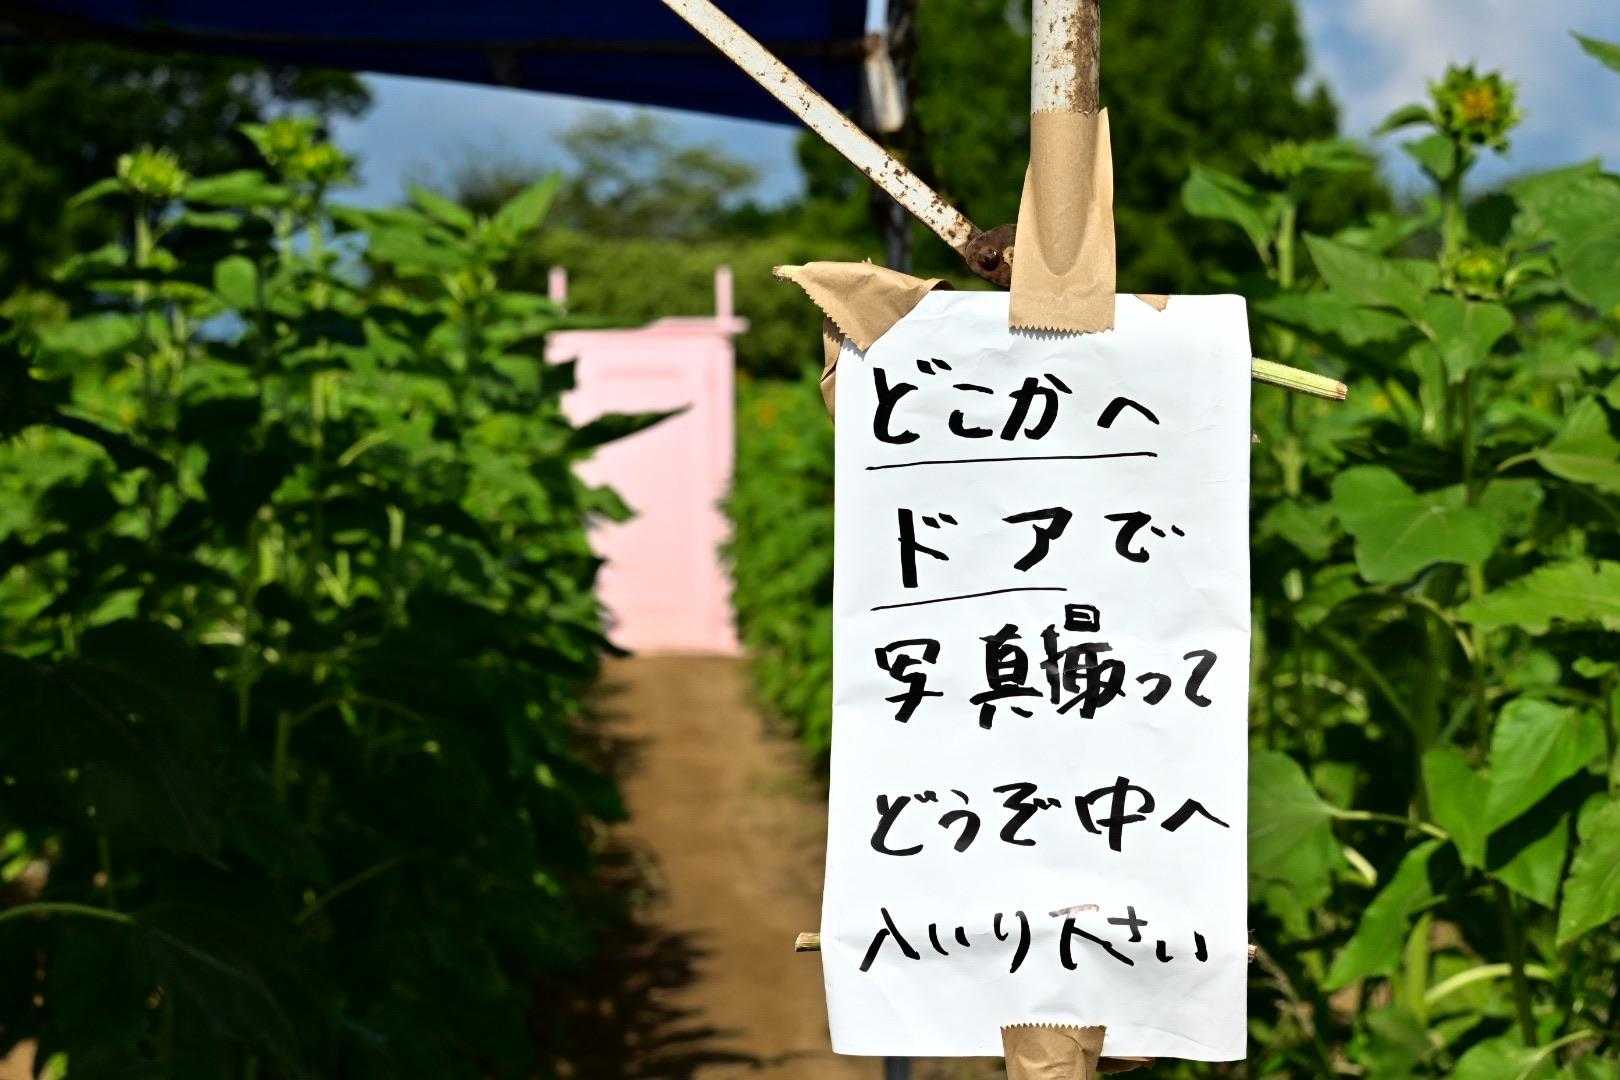 どこかへ
ドアで
写真撮って
どうぞ中へ
入いり下さい